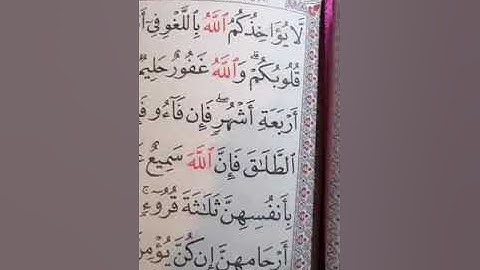 لَّا يُؤَاخِذُكُمُ ٱللَّهُ بِٱللَّغْوِ فِىٓ
قُلُوبُكُمْ ۗ وَٱللَّهُ غَفُورٌ حَلِيمٌ
أَرْبَعَةِ أَشْهُرٍ ۖ فَإِن فَآءُو
ٱلطَّلَـٰقَ فَإِنَّ ٱللَّهَ سَمِيعٌ
بِأَنفُسِهِنَّ ثَلَـٰثَةَ قُرُوٓءٍ ۚ
أَرْحَامِهِنَّ إِن كُنَّ يُؤْمِنَّ